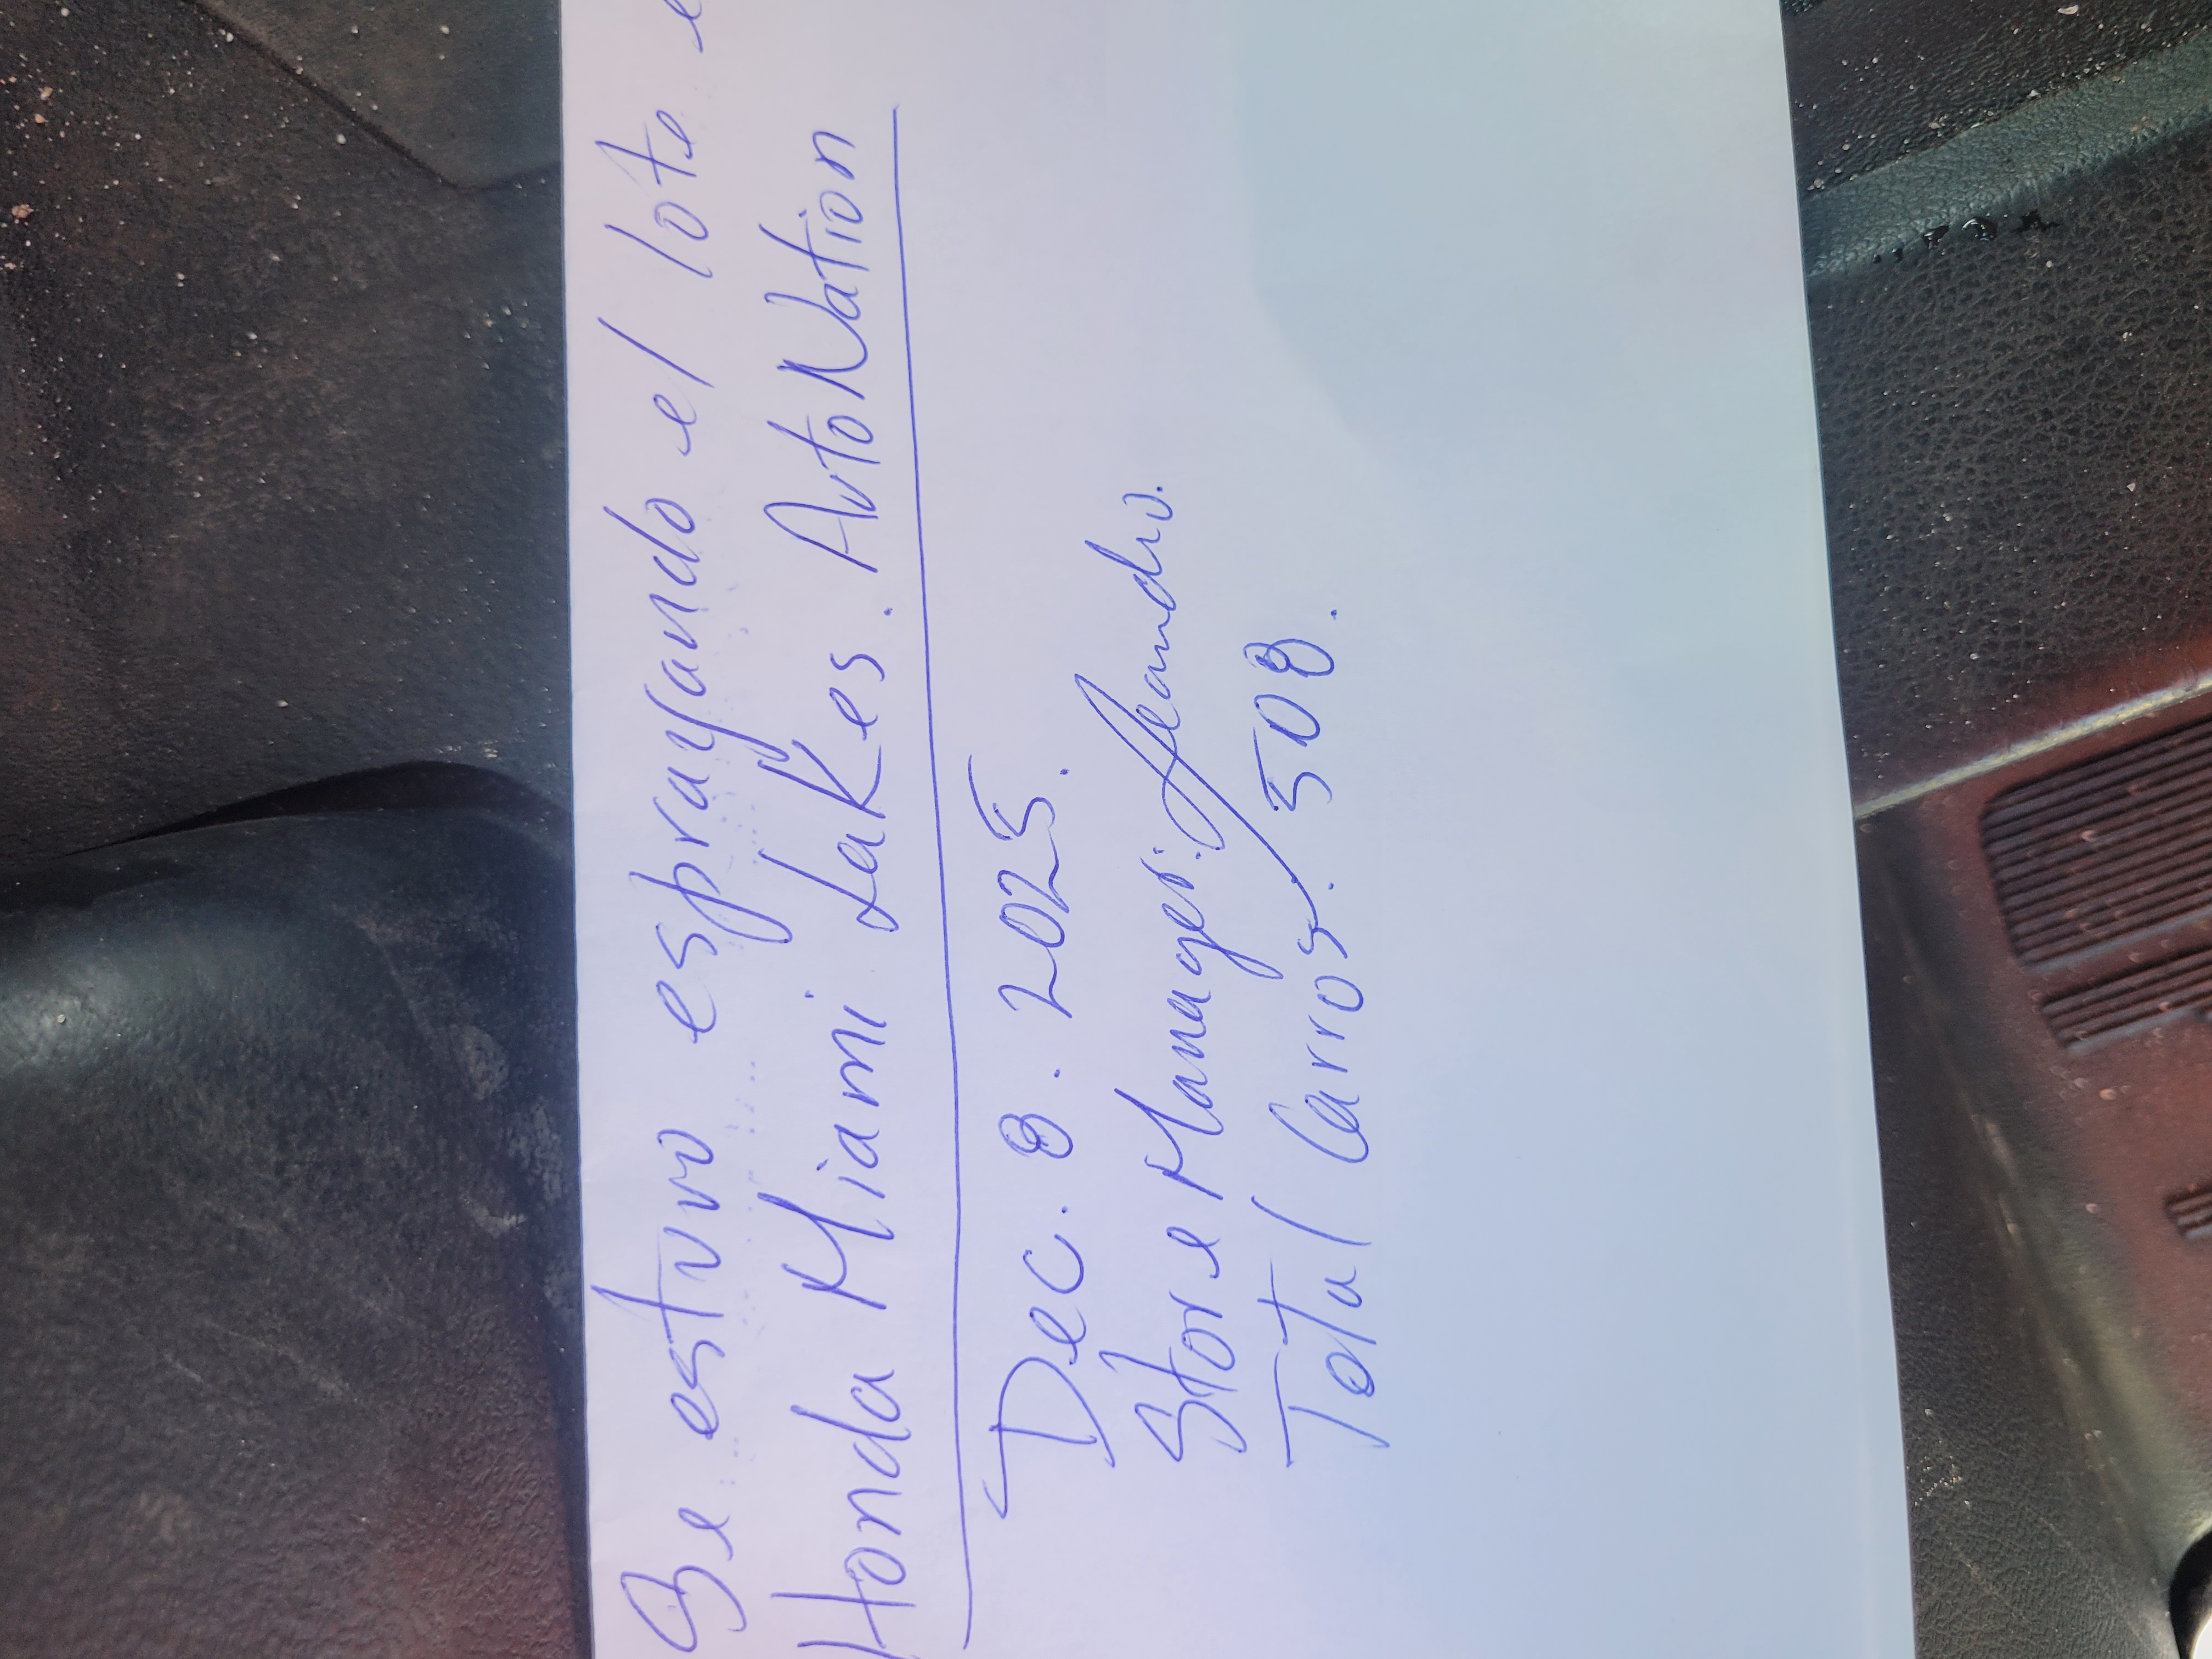 Se estuvo esprayando el lote e
Honda Miami Lakes. AutoNation
Dec. 8. 2025.
Store Manager:
Total Carros: 508.